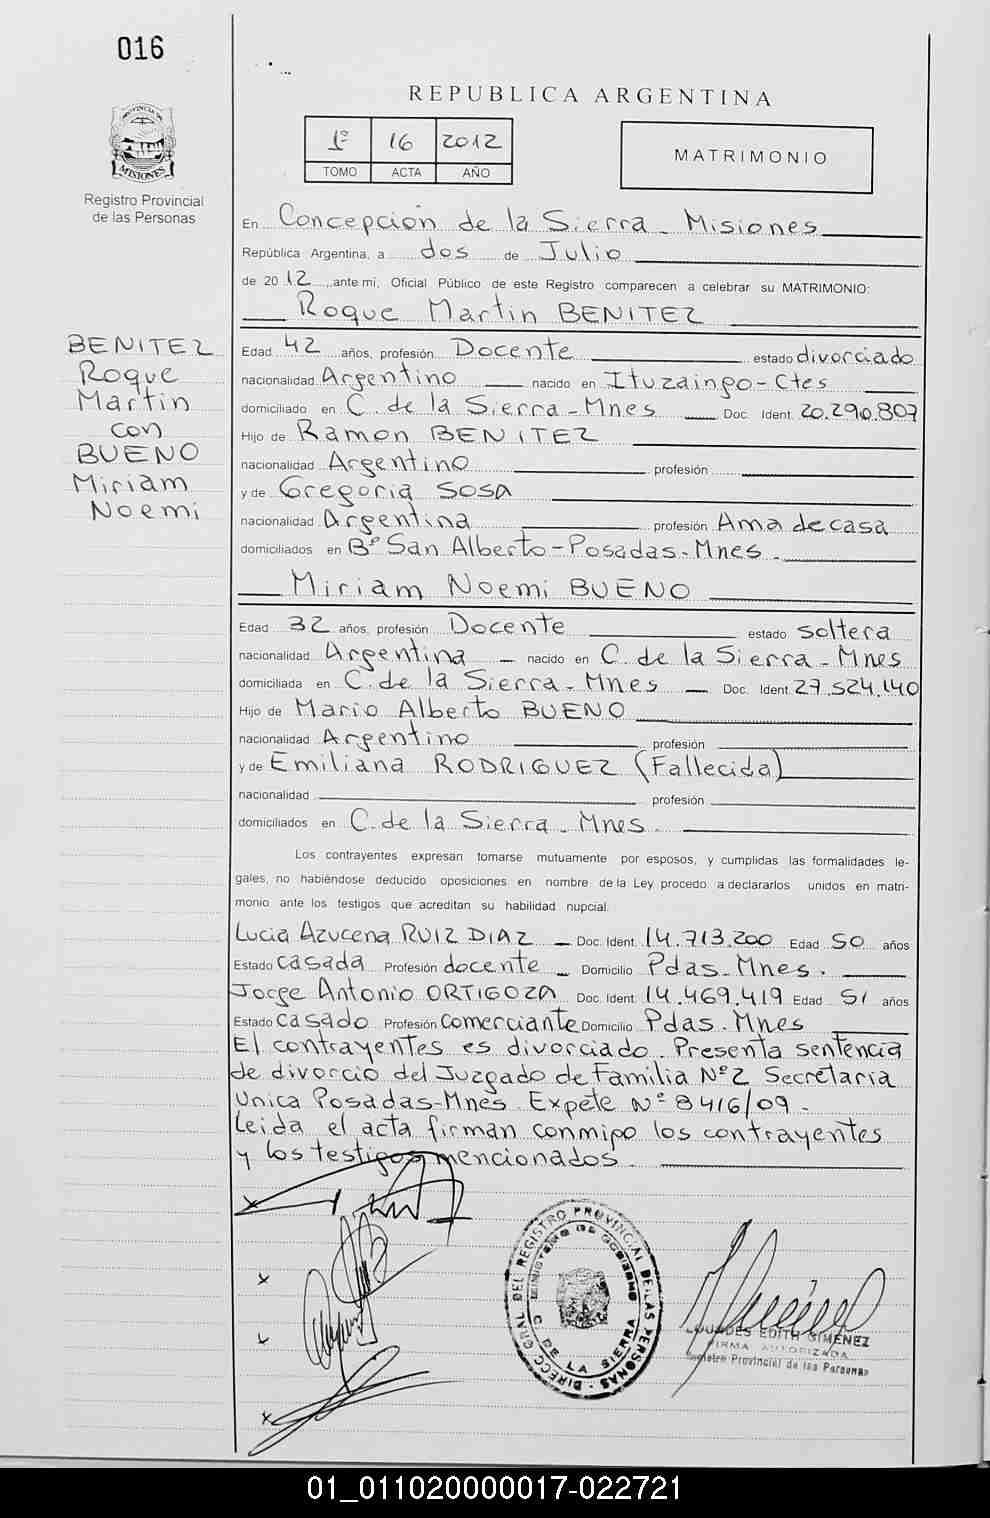 016
PROVINCIA DE
MISIONES
Registro Provincial
de las Personas
REPUBLICA ARGENTINA
1º 16 2012
TOMO ACTA AÑO
MATRIMONIO
En Concepción de la Sierra - Misiones
República Argentina, a dos de Julio
de 2012 ante mí, Oficial Público de este Registro comparecen a celebrar su MATRIMONIO:
Roque Martin BENITEZ
BENITEZ
Roque
Martin
con
BUENO
Miriam
Noemi
Edad 42 años, profesión Docente estado divorciado
nacionalidad Argentino nacido en Ituzaingo - Ctes
domiciliado en C. de la Sierra - Mnes Doc. Ident. 20.290.807
Hijo de Ramon BENITEZ
nacionalidad Argentino profesión
y de Gregoria SOSA
nacionalidad Argentina profesión Ama de casa
domiciliados en Bº San Alberto - Posadas - Mnes -
Miriam Noemi BUENO
Edad 32 años, profesión Docente estado soltera
nacionalidad Argentina - nacido en C. de la Sierra - Mnes
domiciliada en C. de la Sierra - Mnes - Doc. Ident. 27.524.140
Hijo de Mario Alberto BUENO
nacionalidad Argentino profesión
y de Emiliana RODRIGUEZ (Fallecida)
nacionalidad profesión
domiciliados en C. de la Sierra - Mnes.
Los contrayentes expresan tomarse mutuamente por esposos, y cumplidas las formalidades le-
gales, no habiéndose deducido oposiciones en nombre de la Ley procedo a declararlos unidos en matri-
monio ante los testigos que acreditan su habilidad nupcial:
Lucia Azucena RUIZ DIAZ - Doc. Ident. 14.713.200 Edad 50 años
Estado casada Profesión docente - Domicilio Pdas. Mnes.
Jorge Antonio ORTIGOZA Doc. Ident. 14.469.419 Edad 51 años
Estado casado Profesión comerciante Domicilio Pdas. Mnes
El contrayentes es divorciado. Presenta sentencia
de divorcio del Juzgado de Familia Nº2 Secretaria
Unica Posadas-Mnes. Expete Nº 8416/09.
Leida el acta firman conmipo los contrayentes
y los testigos mencionados.
DIRECC. GRAL. DEL REGISTRO PROVINCIAL DE LAS PERSONAS
MINISTERIO DE GOBIERNO
C. DE LA SIERRA
LOURDES EDITH GIMENEZ
FIRMA AUTORIZADA
Registro Provincial de las Personas
01_011020000017-022721